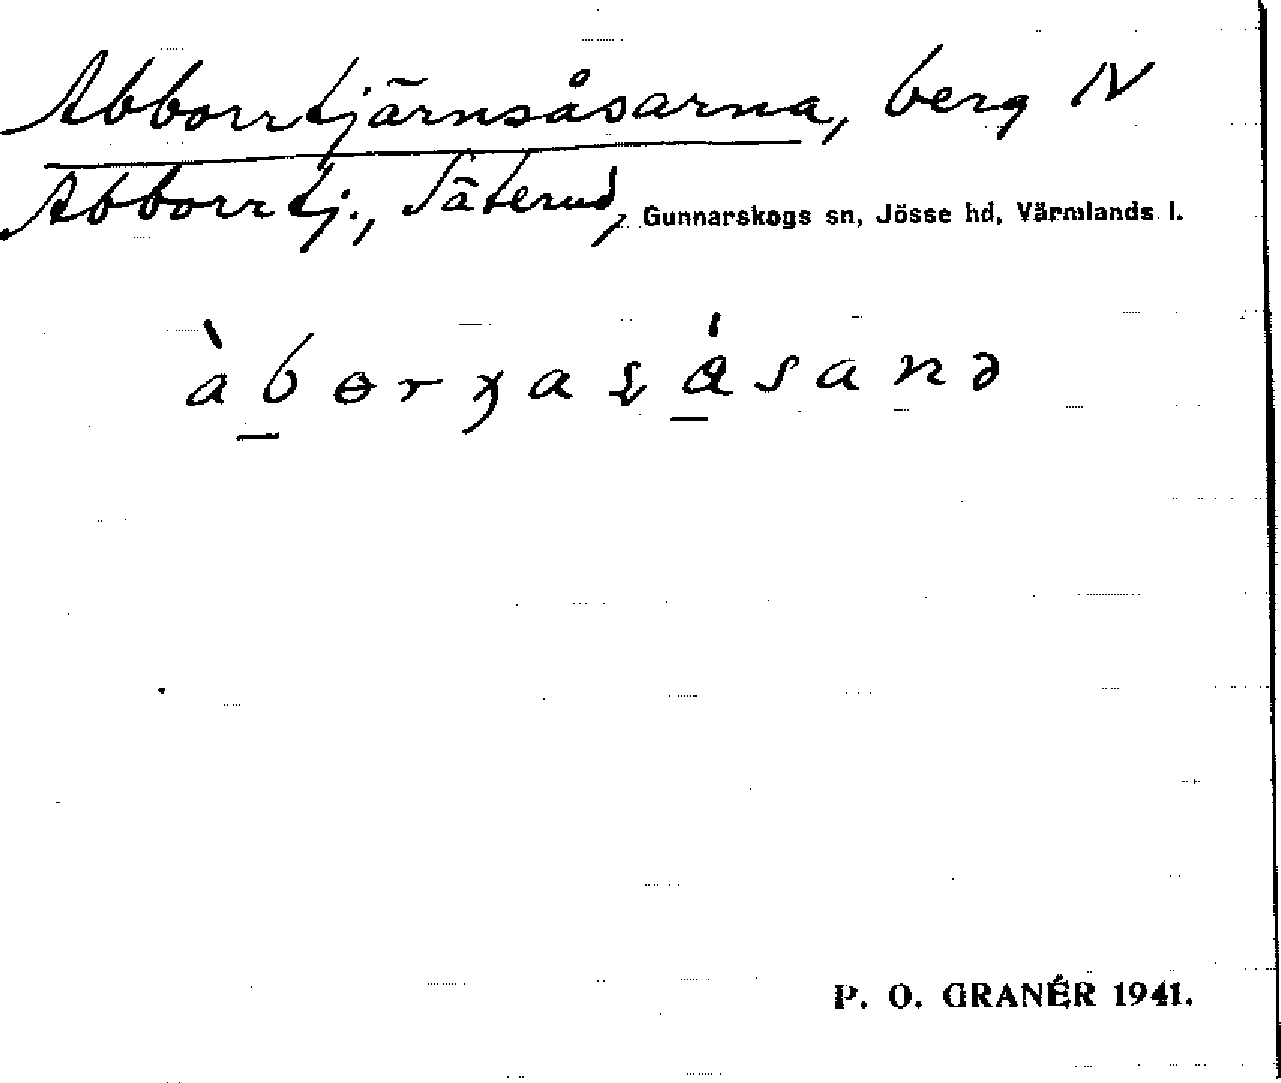 Abborrtjärnsåsarna, berg N
Abborrtj., Säterud, Gunnarskogs sn, Jösse hd, Värmlands l.
P. O. GRANÉR 1941.